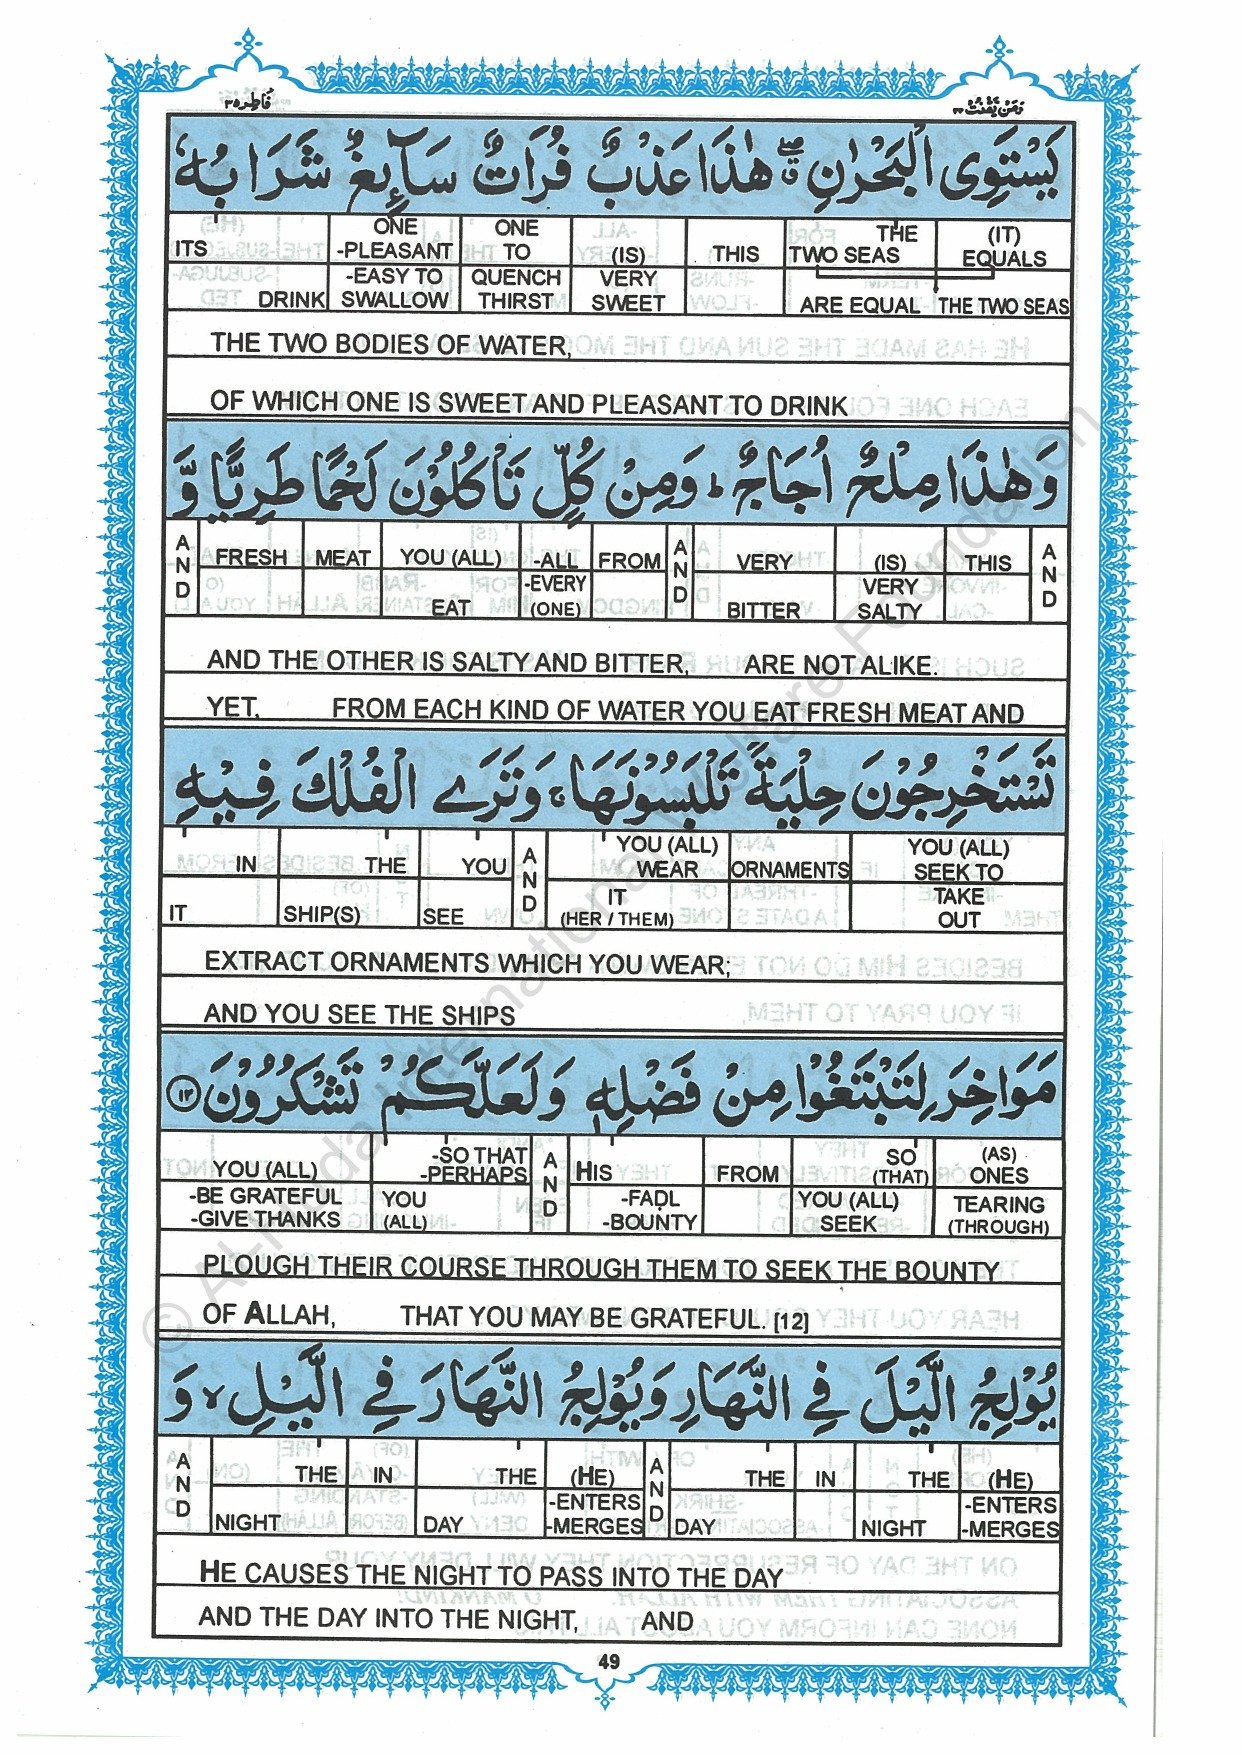 فَاطِر ٣٥
وَمَنْ يَّقْنُتْ ٢٢
يَسْتَوِى الْبَحْرٰنِ ۖ هٰذَا عَذْبٌ فُرَاتٌ سَآئِغٌ شَرَابُهٗ
ITS ONE -PLEASANT ONE TO (IS) THIS THE TWO SEAS (IT) EQUALS
DRINK -EASY TO SWALLOW QUENCH THIRST VERY SWEET ARE EQUAL THE TWO SEAS
THE TWO BODIES OF WATER,
OF WHICH ONE IS SWEET AND PLEASANT TO DRINK
وَهٰذَا مِلْحٌ اُجَاجٌ ؕ وَمِنْ كُلٍّ تَاْكُلُوْنَ لَحْمًا طَرِيًّا وَّ
AND FRESH MEAT YOU (ALL) -ALL FROM AND VERY (IS) THIS AND
EAT -EVERY (ONE) BITTER VERY SALTY
AND THE OTHER IS SALTY AND BITTER, ARE NOT ALIKE.
YET, FROM EACH KIND OF WATER YOU EAT FRESH MEAT AND
تَسْتَخْرِجُوْنَ حِلْيَةً تَلْبَسُوْنَهَا ۚ وَتَرَى الْفُلْكَ فِيْهِ
IN THE YOU AND YOU (ALL) WEAR ORNAMENTS YOU (ALL) SEEK TO
IT SHIP(S) SEE IT (HER / THEM) TAKE OUT
EXTRACT ORNAMENTS WHICH YOU WEAR;
AND YOU SEE THE SHIPS
مَوَاخِرَ لِتَبْتَغُوْا مِنْ فَضْلِهٖ وَلَعَلَّكُمْ تَشْكُرُوْنَ ١٢
YOU (ALL) -SO THAT -PERHAPS AND HIS FROM SO (THAT) (AS) ONES
-BE GRATEFUL -GIVE THANKS YOU (ALL) -FAḌL -BOUNTY YOU (ALL) SEEK TEARING (THROUGH)
PLOUGH THEIR COURSE THROUGH THEM TO SEEK THE BOUNTY
OF ALLAH, THAT YOU MAY BE GRATEFUL. [12]
يُوْلِجُ الَّيْلَ فِى النَّهَارِ وَيُوْلِجُ النَّهَارَ فِى الَّيْلِ ۙ وَ
AND THE IN THE (HE) AND THE IN THE (HE)
NIGHT DAY -ENTERS -MERGES DAY NIGHT -ENTERS -MERGES
HE CAUSES THE NIGHT TO PASS INTO THE DAY
AND THE DAY INTO THE NIGHT, AND
49
© Al-Huda International Welfare Foundation